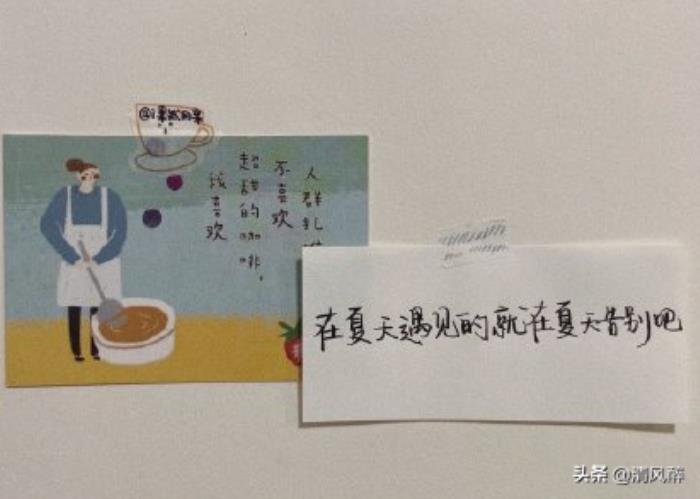 我喜欢
超甜的咖啡,
不喜欢
人群扎
在夏天遇见的就在夏天告别吧
头条 @清风醉